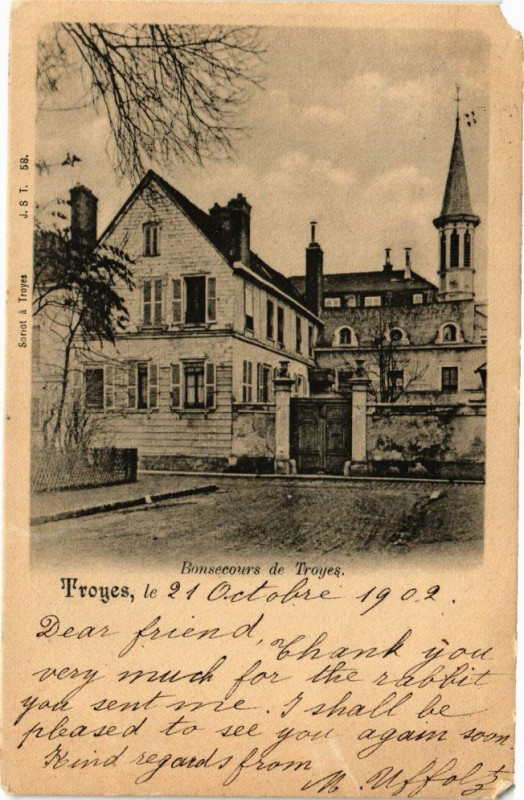 Sorlot à Troyes   J. S T.  58.
Bonsecours de Troyes.
Troyes, le 21 Octobre 1902.
Dear friend,
Thank you
very much for the rabbit
you sent me. I shall be
pleased to see you again soon.
Kind regards from
M. Uffoltz